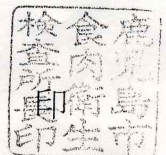 鹿児島市
食肉衛生
検査所長印
印